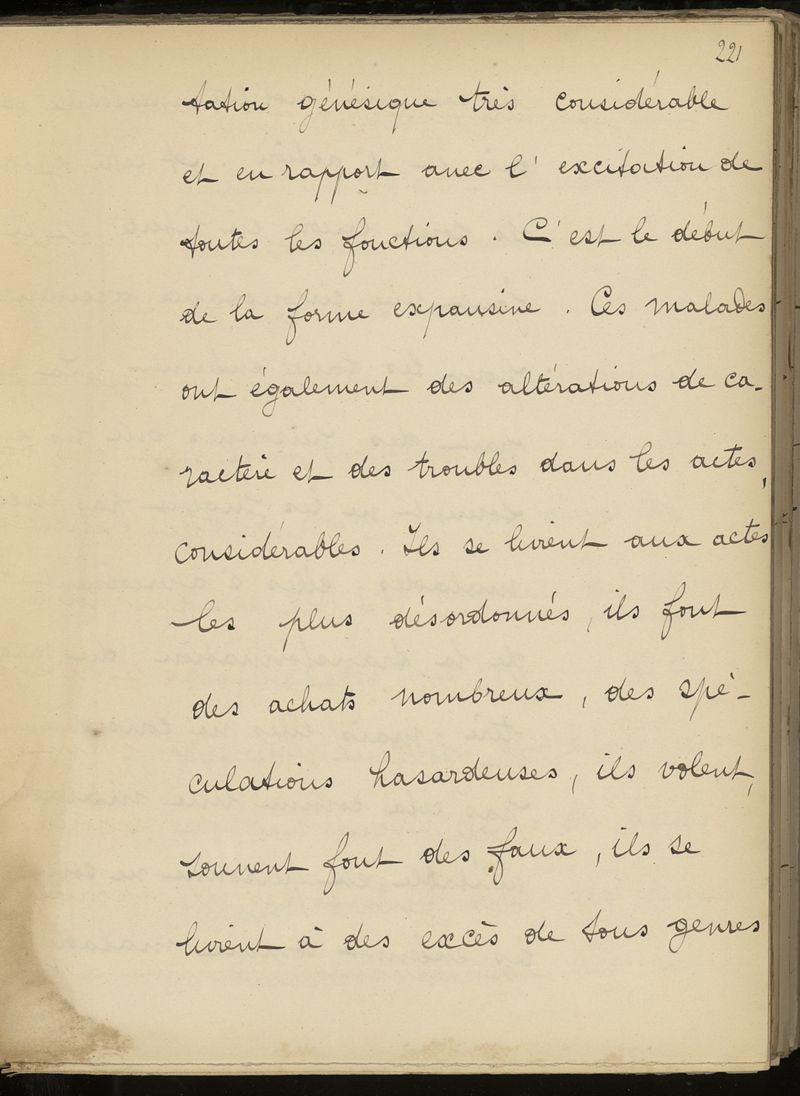 221
tation génésique très considérable
et en rapport avec l'excitation de
toutes les fonctions. C'est le début
de la forme expansive. Ces malades
ont également des altérations de ca-
ractère et des troubles dans les actes,
considérables. Ils se livrent aux actes
les plus désordonnés, ils font
des achats nombreux, des spé-
culations hasardeuses, ils volent,
souvent font des faux, ils se
livrent à des excès de tous genres